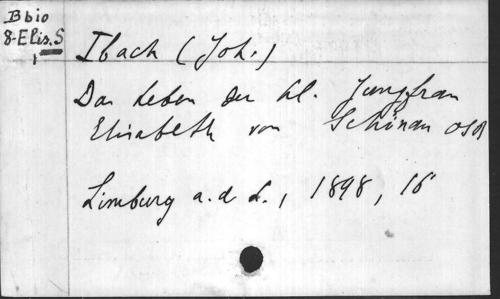 Bbio
8-Elis.S
1
Ibach (Joh.)
Das Leben der hl. Jungfrau
Elisabeth von Schönau OSB
Limburg a.d L., 1898, 16°